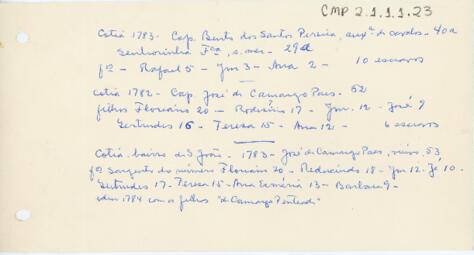 CMP 2.1.1.1.23
Cotia 1783 - Cap. Bento dos Santos Pereira, aux.ᵒ de cavalos - 40a
Senhorinha Fca, s. mer - 29a
fᵒˢ - Rafael 5 - Jm 3 - Ana 2 - 10 escravos
Cotia 1782 - Cap. José de Camargo Paes - 52
filhos Floriano 20 - Rodrisino 17 - Jm. 12 - José 9
Gertrudes 16 - Teresa 15 - Ana 12 - 6 escravos
Cotia, bairro de S. João - 1783 - José de Camargo Paes, 53
fᵒ Sargento de Floriano 20 - Reducindo 18 - Jm 12 - Jé 10.
Gertrudes 17 - Teresa 15 - Ana Esméria 13 - Barbara 9 -
idem 1784 com os filhos "de Camargo Penteado"